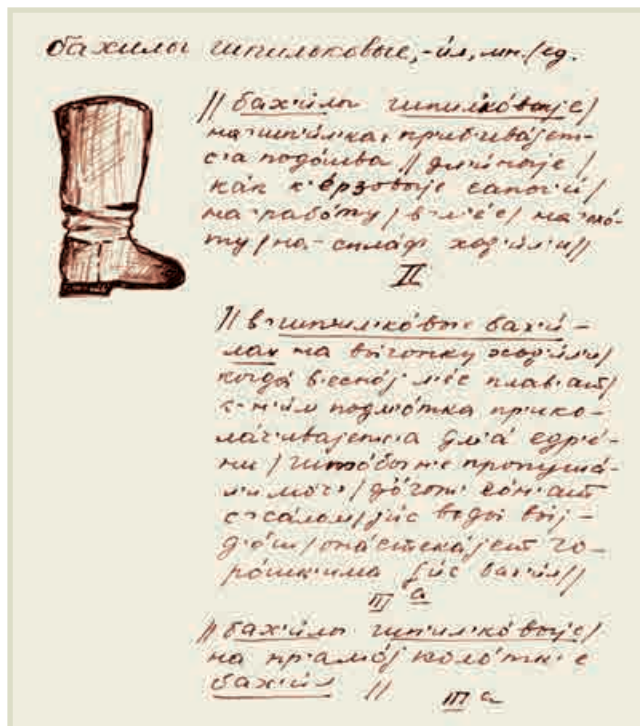 бахилы шпильковые, -ил, мн./ед.
// бах'и́лы шпил'ко́выjе/
на-шпи́л'ка, прибива́jет-
с'а подо́шва // дл'и́ныjе /
как к'е́рзовыjе сапог'и́/
на-рабо́ту / в-л'е́с / на-охо́-
ту / на-сплаф ход'и́л'и //
II
// в-шпил'ко́выjе бах'и́-
лах на вы́гонку ход'и́л'и/
когда́ в'есно́j л'ес плав'ат/
к-н'и́м подм'о́тка прико-
ла́ч'иваjетс'а дл'а́ едр'о́-
ни / што́бы-н'е пропуша́-
л'и
до́гот'
с-са́лом / jис воды́ вы́j-
д'о́ш / она́ стека́jет го-
ро́шкима jис бах'и́л //
III а
// бах'и́лы шпил'ко́выjе/
на пр'амо́j коло́тк'е
бах'и́л //
III а